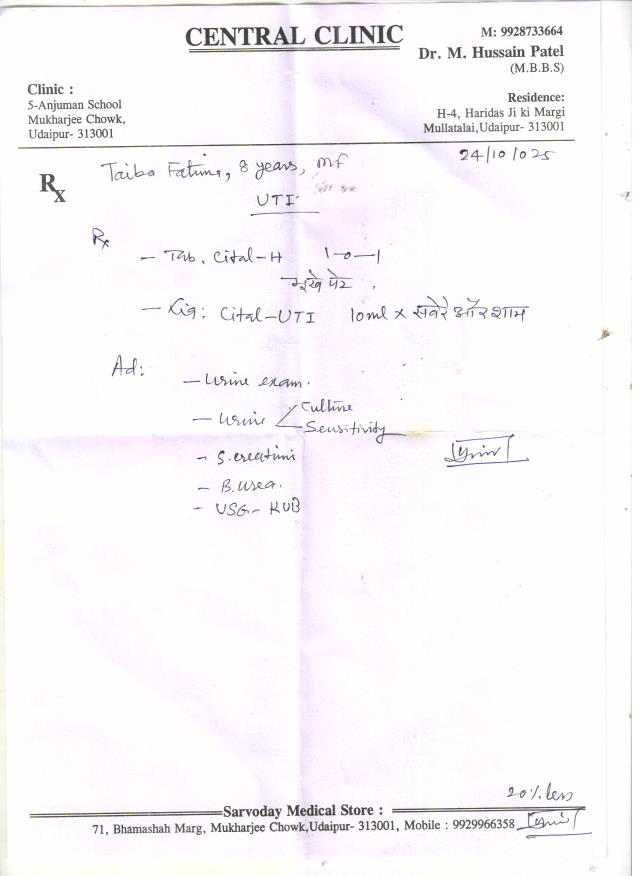 CENTRAL CLINIC
M: 9928733664
Dr. M. Hussain Patel
(M.B.B.S)
Clinic :
5-Anjuman School
Mukharjee Chowk,
Udaipur- 313001
Residence:
H-4, Haridas Ji ki Margi
Mullatalai,Udaipur- 313001
24/10/025
Rx
Taiba Fatima, 8 years,
UTI
Rx
- Tab. Cital-H 1-0-1
भूखे पेट
- Liq: Cital-UTI 10ml x सवेरे और शाम
Ad:
- Urine exam.
- Urine Culture
Sensitivity
- S. creatini
- B. urea.
- USG- KUB
20% less
Sarvoday Medical Store :
71, Bhamashah Marg, Mukharjee Chowk,Udaipur- 313001, Mobile : 9929966358